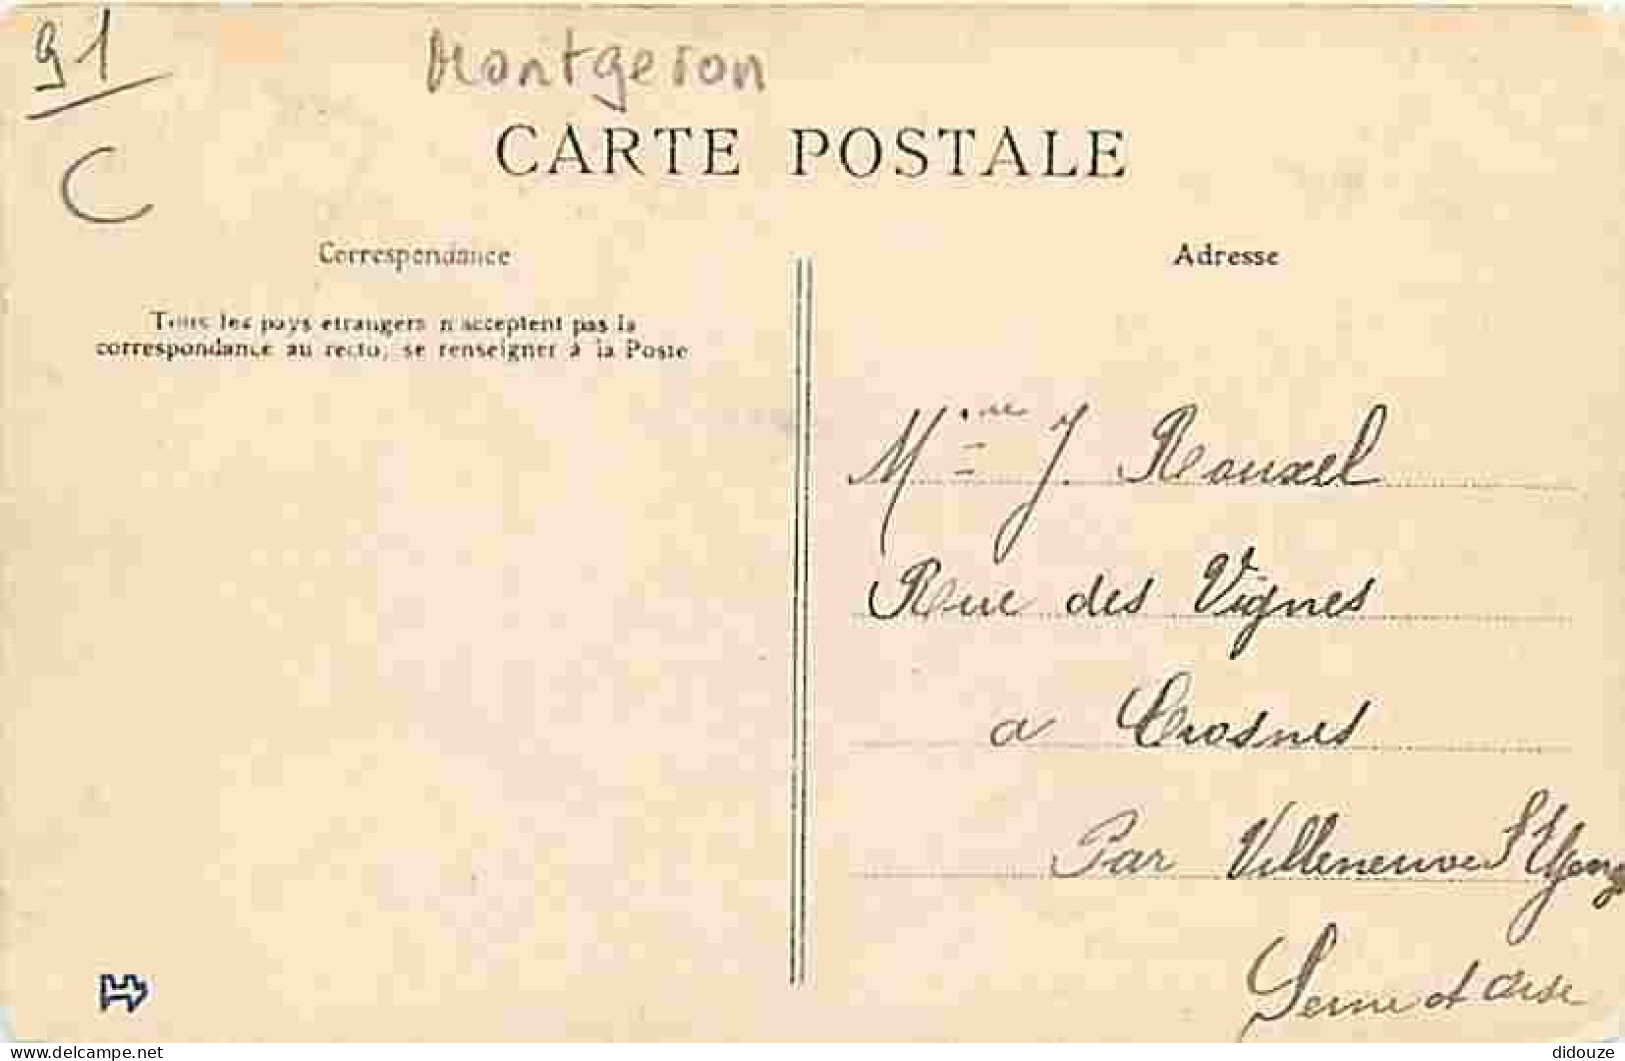 91
Montgeron
C
CARTE POSTALE
Correspondance
Tous les pays étrangers n'acceptent pas la
correspondance au recto, se renseigner à la Poste
Adresse
Mme J. Rouxel
Rue des Vignes
a Crosnes
Par Villeneuve St Georg
Seine et Oise
delcampe.net
didouze